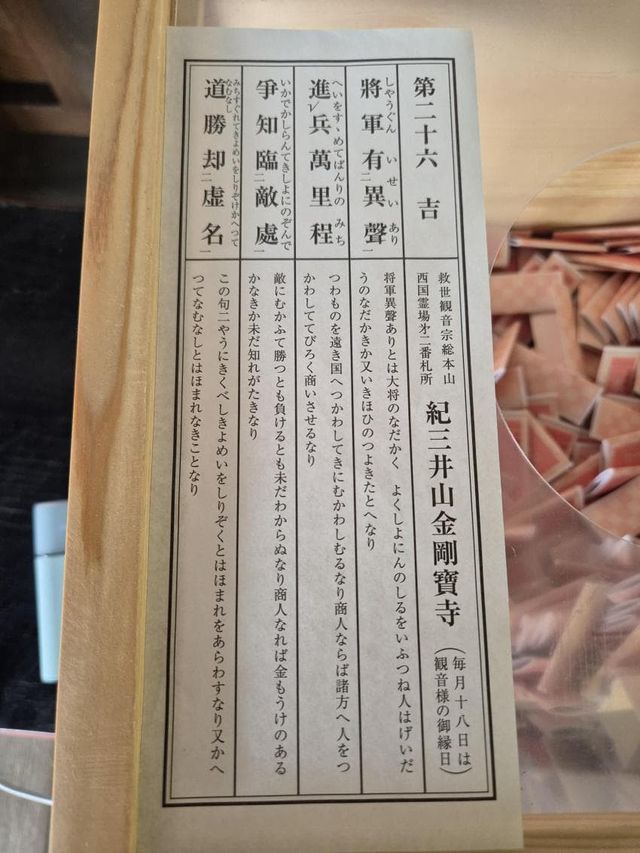 第二十六 吉
救世観音宗総本山
西国霊場㐧二番札所
紀三井山金剛寶寺
（毎月十八日は
観音様の御縁日）
しやうぐん いせいあり
將軍有二異聲一
将軍異聲ありとは大将のなだかく よくしよにんのしるをいふつね人はげいだ
うのなだかきか又いきほひのつよきたとへなり
へいをすゝめてばんりのみち
進レ兵萬里程
つわものを遠き国へつかわしてきにむかわしむるなり商人ならば諸方へ人をつ
かわしててびろく商いさせるなり
いかでかしらんてきしよにのぞんで
爭知臨二敵處一
敵にむかふて勝つとも負けるとも未だわからぬなり商人なれば金もうけのある
かなきか未だ知れがたきなり
みちすぐれてきよめいをしりぞけかへつて
なむなし
道勝却二虚名一
この句二やうにきくべしきよめいをしりぞくとはほまれをあらわすなり又かへ
つてなむなしとはほまれなきことなり